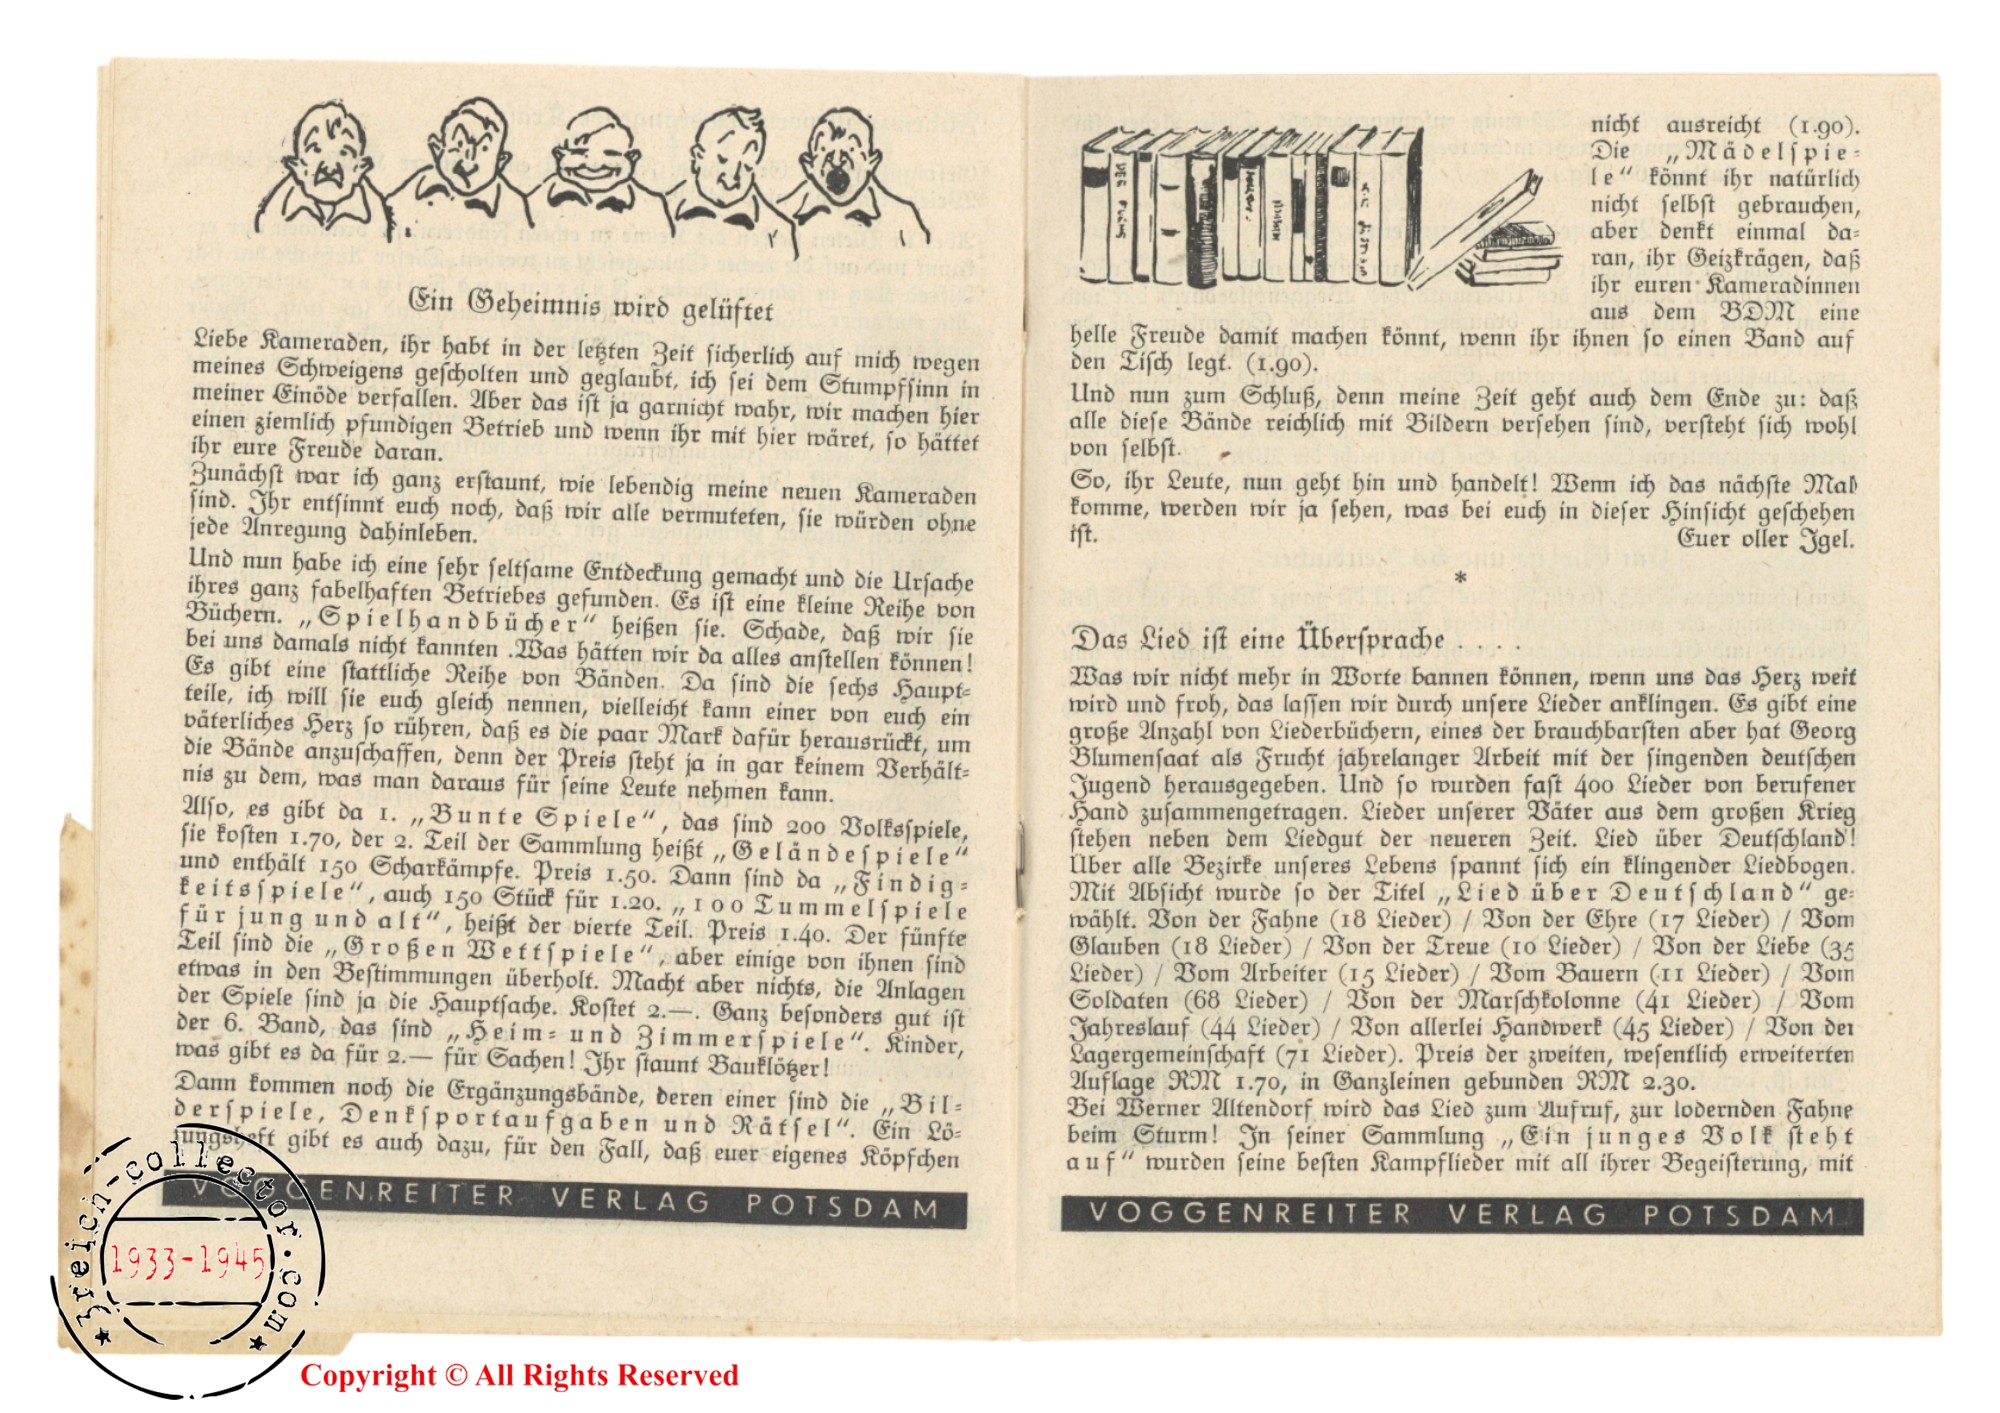 Ein Geheimnis wird gelüftet
Liebe Kameraden, ihr habt in der letzten Zeit sicherlich auf mich wegen
meines Schweigens gescholten und geglaubt, ich sei dem Stumpfsinn in
meiner Einöde verfallen. Aber das ist ja garnicht wahr, wir machen hier
einen ziemlich pfundigen Betrieb und wenn ihr mit hier wäret, so hättet
ihr eure Freude daran.
Zunächst war ich ganz erstaunt, wie lebendig meine neuen Kameraden
sind. Ihr entsinnt euch noch, daß wir alle vermuteten, sie würden ohne
jede Anregung dahinleben.
Und nun habe ich eine sehr seltsame Entdeckung gemacht und die Ursache
ihres ganz fabelhaften Betriebes gefunden. Es ist eine kleine Reihe von
Büchern. „Spielhandbücher“ heißen sie. Schade, daß wir sie
bei uns damals nicht kannten .Was hätten wir da alles anstellen können!
Es gibt eine stattliche Reihe von Bänden. Da sind die sechs Haupt-
teile, ich will sie euch gleich nennen, vielleicht kann einer von euch ein
väterliches Herz so rühren, daß es die paar Mark dafür herausrückt, um
die Bände anzuschaffen, denn der Preis steht ja in gar keinem Verhält-
nis zu dem, was man daraus für seine Leute nehmen kann.
Also, es gibt da 1. „Bunte Spiele“, das sind 200 Volksspiele,
sie kosten 1.70, der 2. Teil der Sammlung heißt „Geländespiele“
und enthält 150 Scharkämpfe. Preis 1.50. Dann sind da „Findig-
keitsspiele“, auch 150 Stück für 1.20. „100 Tummelspiele
für jung und alt“, heißt der vierte Teil. Preis 1.40. Der fünfte
Teil sind die „Großen Wettspiele“, aber einige von ihnen sind
etwas in den Bestimmungen überholt. Macht aber nichts, die Anlagen
der Spiele sind ja die Hauptsache. Kostet 2.—. Ganz besonders gut ist
der 6. Band, das sind „Heim- und Zimmerspiele“. Kinder,
was gibt es da für 2.— für Sachen! Ihr staunt Bauklötzer!
Dann kommen noch die Ergänzungsbände, deren einer sind die „Bil-
derspiele, Denksportaufgaben und Rätsel“. Ein Lö-
sungsheft gibt es auch dazu, für den Fall, daß euer eigenes Köpfchen
VOGGENREITER VERLAG POTSDAM
nicht ausreicht (1.90).
Die „Mädelspie-
le“ könnt ihr natürlich
nicht selbst gebrauchen,
aber denkt einmal da-
ran, ihr Geizkrägen, daß
ihr euren Kameradinnen
aus dem BDM eine
helle Freude damit machen könnt, wenn ihr ihnen so einen Band auf
den Tisch legt. (1.90).
Und nun zum Schluß, denn meine Zeit geht auch dem Ende zu: daß
alle diese Bände reichlich mit Bildern versehen sind, versteht sich wohl
von selbst.
So, ihr Leute, nun geht hin und handelt! Wenn ich das nächste Mal
komme, werden wir ja sehen, was bei euch in dieser Hinsicht geschehen
ist. Euer oller Igel.
*
Das Lied ist eine Übersprache . . . .
Was wir nicht mehr in Worte bannen können, wenn uns das Herz weit
wird und froh, das lassen wir durch unsere Lieder anklingen. Es gibt eine
große Anzahl von Liederbüchern, eines der brauchbarsten aber hat Georg
Blumensaat als Frucht jahrelanger Arbeit mit der singenden deutschen
Jugend herausgegeben. Und so wurden fast 400 Lieder von berufener
Hand zusammengetragen. Lieder unserer Väter aus dem großen Krieg
stehen neben dem Liedgut der neueren Zeit. Lied über Deutschland!
Über alle Bezirke unseres Lebens spannt sich ein klingender Liedbogen.
Mit Absicht wurde so der Titel „Lied über Deutschland“ ge-
wählt. Von der Fahne (18 Lieder) / Von der Ehre (17 Lieder) / Vom
Glauben (18 Lieder) / Von der Treue (10 Lieder) / Von der Liebe (35
Lieder) / Vom Arbeiter (15 Lieder) / Vom Bauern (11 Lieder) / Vom
Soldaten (68 Lieder) / Von der Marschkolonne (41 Lieder) / Vom
Jahreslauf (44 Lieder) / Von allerlei Handwerk (45 Lieder) / Von der
Lagergemeinschaft (71 Lieder). Preis der zweiten, wesentlich erweiterten
Auflage RM 1.70, in Ganzleinen gebunden RM 2.30.
Bei Werner Altendorf wird das Lied zum Aufruf, zur lodernden Fahne
beim Sturm! In seiner Sammlung „Ein junges Volk steht
auf“ wurden seine besten Kampflieder mit all ihrer Begeisterung, mit
VOGGENREITER VERLAG POTSDAM
3reich-collector.com
1933-1945
Copyright © All Rights Reserved